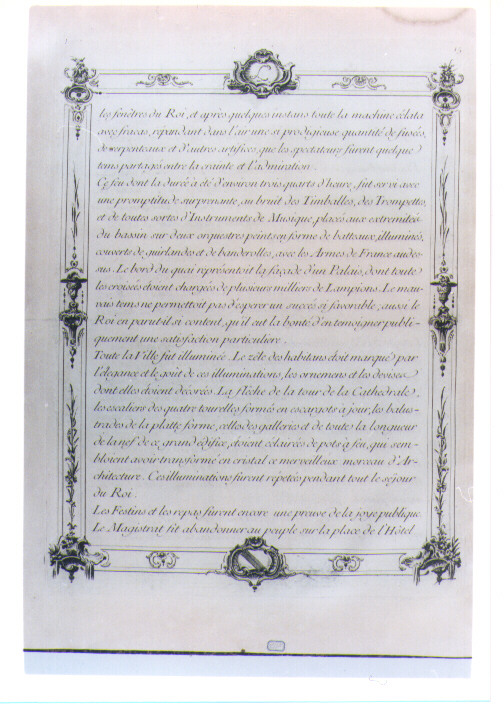 les fenêtres du Roi, et après quelques instans toute la machine éclata
avec fracas, répandant dans l'air une si prodigieuse quantité de fusées,
de serpenteaux et d'autres artifices, que les spectateurs furent quelque
tems partagés entre la crainte et l'admiration.
Ce feu dont la durée a été d'environ trois quarts d'heure, fut servi avec
une promptitude surprenante, au bruit des Timballes, des Trompettes,
et de toutes sortes d'Instruments de Musique, placés aux extremités
du bassin sur deux orquestres peints en forme de batteaux illuminés,
couverts de guirlandes et de banderolles, avec les Armes de France au des-
sus. Le bord du quai représentoit la façade d'un Palais, dont toute
les croisées étoient chargées de plusieurs milliers de Lampions. Le mau-
vais tems ne permettoit pas d'esperer un succès si favorable, aussi le
Roi en parut-il si content, qu'il eut la bonté d'en temoigner publi-
quement une satisfaction particuliere.
Toute la Ville fut illuminée. Le zèle des habitans étoit marqué par
l'elegance et le goût de ces illuminations, les ornemens et les devises
dont elles étoient décorées. La flèche de la tour de la Cathedrale,
les escaliers des quatre tourelles formés en escargots à jour, les balus-
trades de la platte forme, celles des galleries et de toute la longueur
de la nef de ce grand édifice, étoient éclairées de pots à feu, qui sem-
bloient avoir transformé en cristal ce merveilleux morceau d'Ar-
chitecture. Ces illuminations furent repetées pendant tout le séjour
du Roi.
Les Festins et les repas furent encore une preuve de la joye publique.
Le Magistrat fit abandonner au peuple sur la place de l'Hôtel